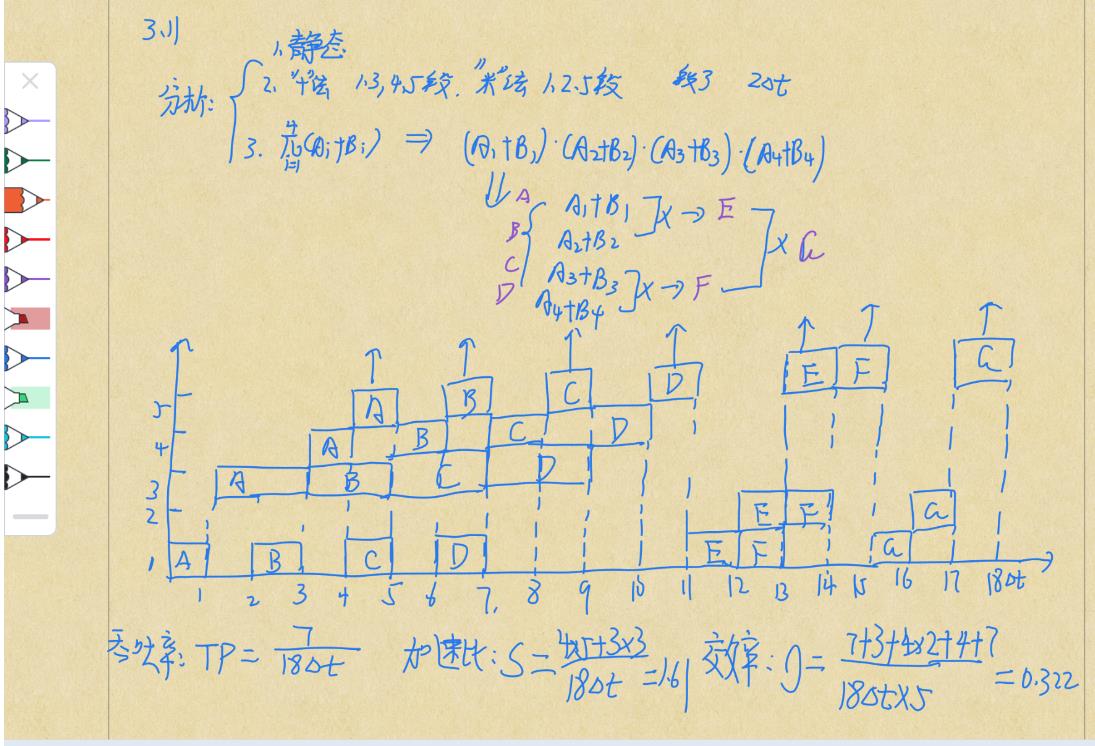 3.11
分析:
1.静态
2. "+"法 1.3,4.5段. "米"法 1.2.5段 段3 2Δt
3. 4 π i=1 (Ai+Bi) ⇒ (A1+B1)·(A2+B2)·(A3+B3)·(A4+B4)
A A1+B1 ]× → E
B A2+B2 ]× G
C A3+B3 ]× → F
D A4+B4
E F G
A B C D
5
A B C D
4
A B C D
3
E F G
2
A B C D E F G
1
1 2 3 4 5 6 7. 8 9 10 11 12 13 14 15 16 17 18Δt
吞吐率: TP = 7 / 18Δt 加速比: S = 4x5+3x3 / 18Δt = 1.61 效率: η = 7+3+4x2+4+7 / 18Δtx5 = 0.322